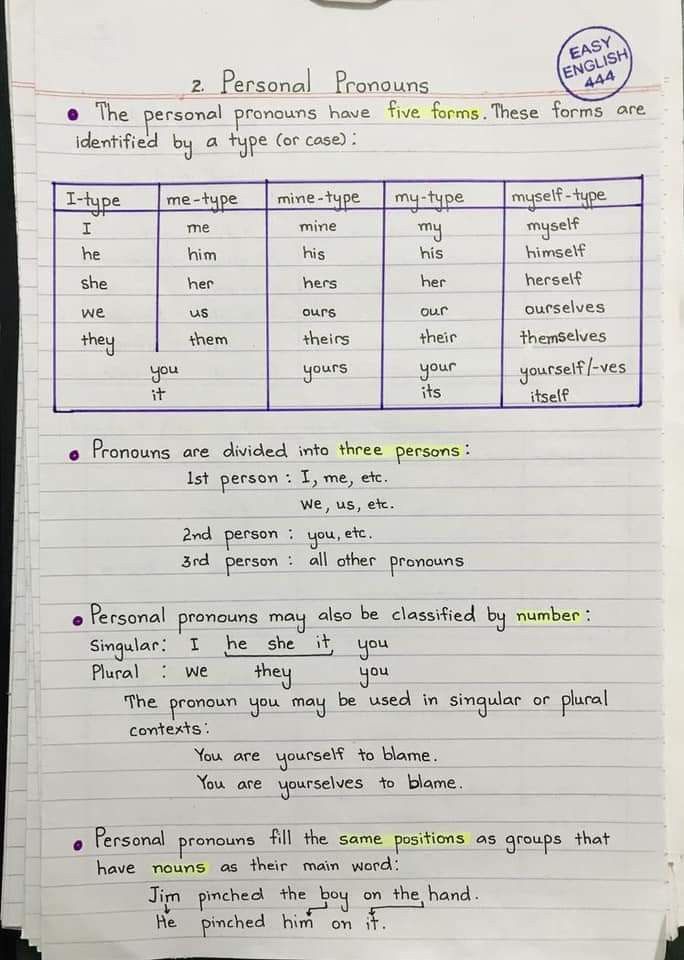 EASY
ENGLISH
444
2. Personal Pronouns
The personal pronouns have five forms. These forms are
identified by a type (or case):
I-type me-type mine-type my-type myself-type
I me mine my myself
he him his his himself
she her hers her herself
we us ours our ourselves
they them theirs their themselves
you yours your yourself/-ves
it its itself
Pronouns are divided into three persons:
1st person : I, me, etc.
we, us, etc.
2nd person : you, etc.
3rd person : all other pronouns
Personal pronouns may also be classified by number:
Singular: I he she it you
Plural : we they you
The pronoun you may be used in singular or plural
contexts:
You are yourself to blame.
You are yourselves to blame.
Personal pronouns fill the same positions as groups that
have nouns as their main word:
Jim pinched the boy on the hand.
He pinched him on it.